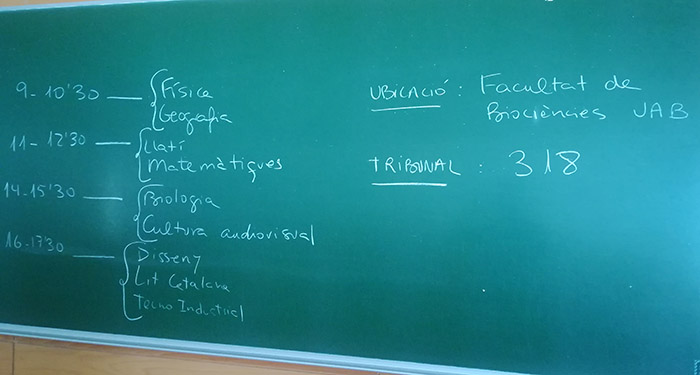 9-10'30 — Física
Geografia
11-12'30 — Llatí
Matemàtiques
14-15'30 — Biologia
Cultura audiovisual
16-17'30 — Disseny
Lit Catalana
Tecno Industrial
UBICACIÓ: Facultat de
Biociències UAB
TRIBUNAL: 318